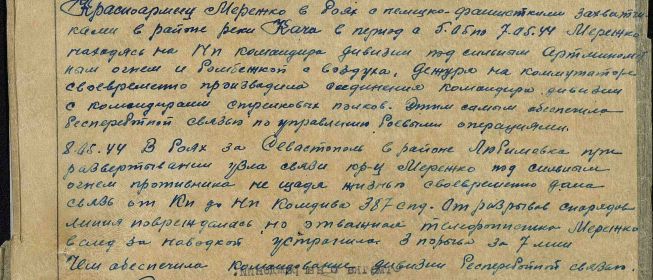 Красноармеец Мережко в боях с немецко-фашистскими захватчи-
ками в районе реки Кача в период с 5.05 по 7.05.44 Мережко
находясь на Нп командира дивизии под сильным артминомет
ным огнем и бомбежкой с воздуха, дежуря на коммутаторе
своевременно производила соединения командира дивизии
с командирами стрелковых полков. Этим самым обеспечила
бесперебойной связью по управлению боевыми операциями.
8.05.44 В боях за Севастополь в районе Любимовка при
развертывании узла связи кр-ц Мережко под сильным
огнем противника не щадя жизнью своевременно дала
связь от Кп до Нп Комдива 387 спд. От разрывов снарядов
линия повреждалась, но отважная телефонистка Мережко
вслед за наводкой устранила 3 порыва за 7 мин
Чем обеспечила командование дивизии бесперебойной связью.